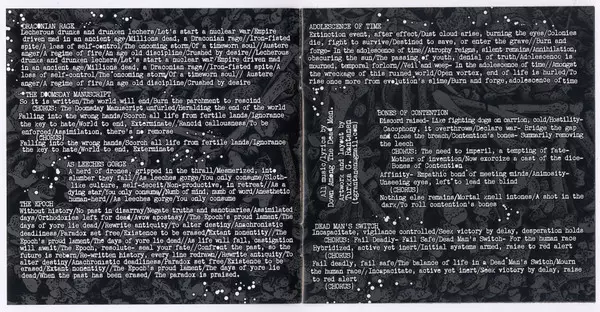 DRACONIAN RAGE
Lecherous drunks and drunken lechers/Let's start a nuclear war/Empire
driven mad in an ancient age/Millions dead, a Draconian rage//Iron-fisted
spite/A loss of self-control/The oncoming storm/Of a timeworn soul//Austere
anger/A regime of fire/An age old disaster/Crushed by desire//Lecherous
drunks and drunken lechers/Let's start a nuclear war/Empire driven mad
in an ancient age/Millions dead, a Draconian rage//Iron-fisted spite/A
loss of self-control/The oncoming storm/Of a timeworn soul// Austere
anger/A regime of fire/An age old disaster/Crushed by desire
THE DOOMSDAY MANUSCRIPT
So it is written/The world will end/Burn the parchment to rescind
CHORUS: The Doomsday Manuscript unfurled/Heralding the end of the world
Falling into the wrong hands/Scorch all life from fertile lands/Ignorance
the key to hate/World to end, Exterminate//Rancid callousness/To be
enforced/Annihilation, there's no remorse
(CHORUS)
Falling into the wrong hands/Scorch all life from fertile lands/Ignorance
the key to hate/World to end, Exterminate
(CHORUS)
AS LEECHES GORGE
A herd of drones, gripped in the thrall/Mesmerized, into
slumber they fall/ As leeches gorge/You only consume//Sloth
like culture, self-deceit/Non-productive, in retreat//As a
dying star/You only consume//Numb of mind, numb of womb/Anesthetic
human-herd//As leeches gorge/You only consume
THE EPOCH
Without history/No past in disarray/Negate truths and sanctuaries/Assimilated
days/Orthodoxies left for dead/Avow apostasy/ /The Epoch's proud lament/The
days of yore lie dead//Rewrite antiquity/To alter destiny/Anachronistic
deadliness/Paradox set free/Existence to be erased/Extant nonentity// The
Epoch's proud lament/The days of yore lie dead/ /As life will fall, instigation
will await/The Epoch, resolute- seal your fate//Confront the past, so the
future is reborn/Re-written history, every line redrawn//Rewrite antiquity/To
alter destiny/Anachronistic deadliness/Paradox set free/Existence to be
erased/Extant nonentity//The Epoch's proud lament/The days of yore lie
dead/When the past has been erased/ The paradox is praised.
ADOLESCENCE OF TIME
Extinction event, after effect/Dust cloud arise, burning the eyes/Colonies
die, fight to survive/Destined to save, or enter the grave//Burn and
forge- In the adolescence of time/Atrophy reigns, silent remains/Annihilation,
obscuring the sun/The passing of youth, denial of truth/Adolescence is
mourned, temporal forlorn//Veil and weep- In the adolescence of time//Amongst
the wreckage of this ruined world/Open vortex, end of life is hurled/To
rise once more from evolution's slime/Burn and forge, adolescence of time
All music/lyrics by
Down Among The Dead Men.
Artwork and layout by
Turkka G. Rantanen
tgrantanen@gmail.com
BONES OF CONTENTION
Discord raised- Like fighting dogs on carrion, cold/Hostility-
Cacophony, it overthrows/Declare war- Bridge the gap
and close the breach/Contention's bones- Summarily removing
the leech
(CHORUS: The need to imperil, a tempting of fate-
Mother of invention/Now exorcize a cast of the dice-
Bones of Contention
Affinity- Empathic bond of meeting minds/Animosity-
Unseeing eyes, left to lead the blind
(CHORUS)
Nothing else remains/Mortal knell intones/A shot in the
dark/To roll contention's bones
DEAD MAN'S SWITCH
Incapacitate, vigilance controlled/Seek victory by delay, desperation holds
CHORUS: Fail Deadly- Fail Safe/Dead Man's Switch- For the human race
Hybridized, active yet inert/Initial systems armed, raise to red alert
(CHORUS)
Fail deadly, fail safe/The balance of life in a Dead Man's Switch/Mourn
the human race//Incapacitate, active yet inert/Seek victory by delay, raise
to red alert
(CHORUS)